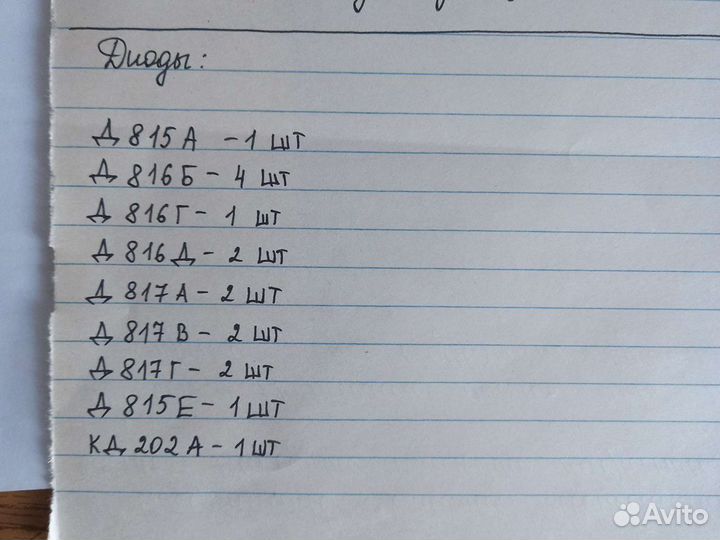 Диоды:
Д 815 А - 1 шт
Д 816 Б - 4 шт
Д 816 Г - 1 шт
Д 816 Д - 2 шт
Д 817 А - 2 шт
Д 817 В - 2 шт
Д 817 Г - 2 шт
Д 815 Е - 1 шт
КД 202 А - 1 шт
Avito